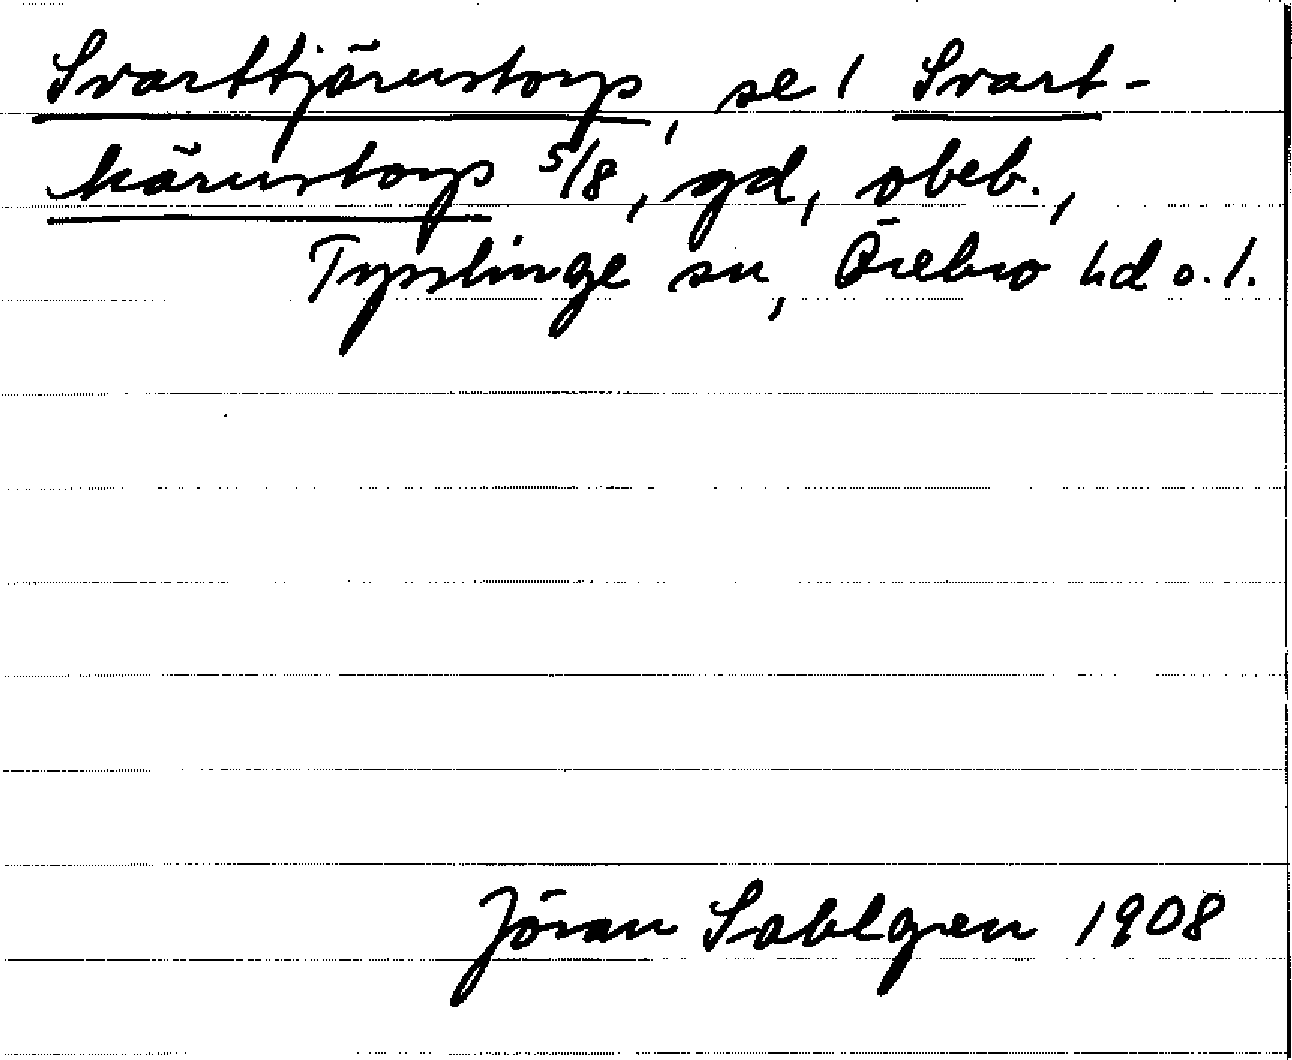 Svarttjärnstorp, se 1 Svart-
kärnstorp 5/8, gd, obeb.,
Tysslinge sn, Örebro hd o. l.
Jöran Sahlgren 1908